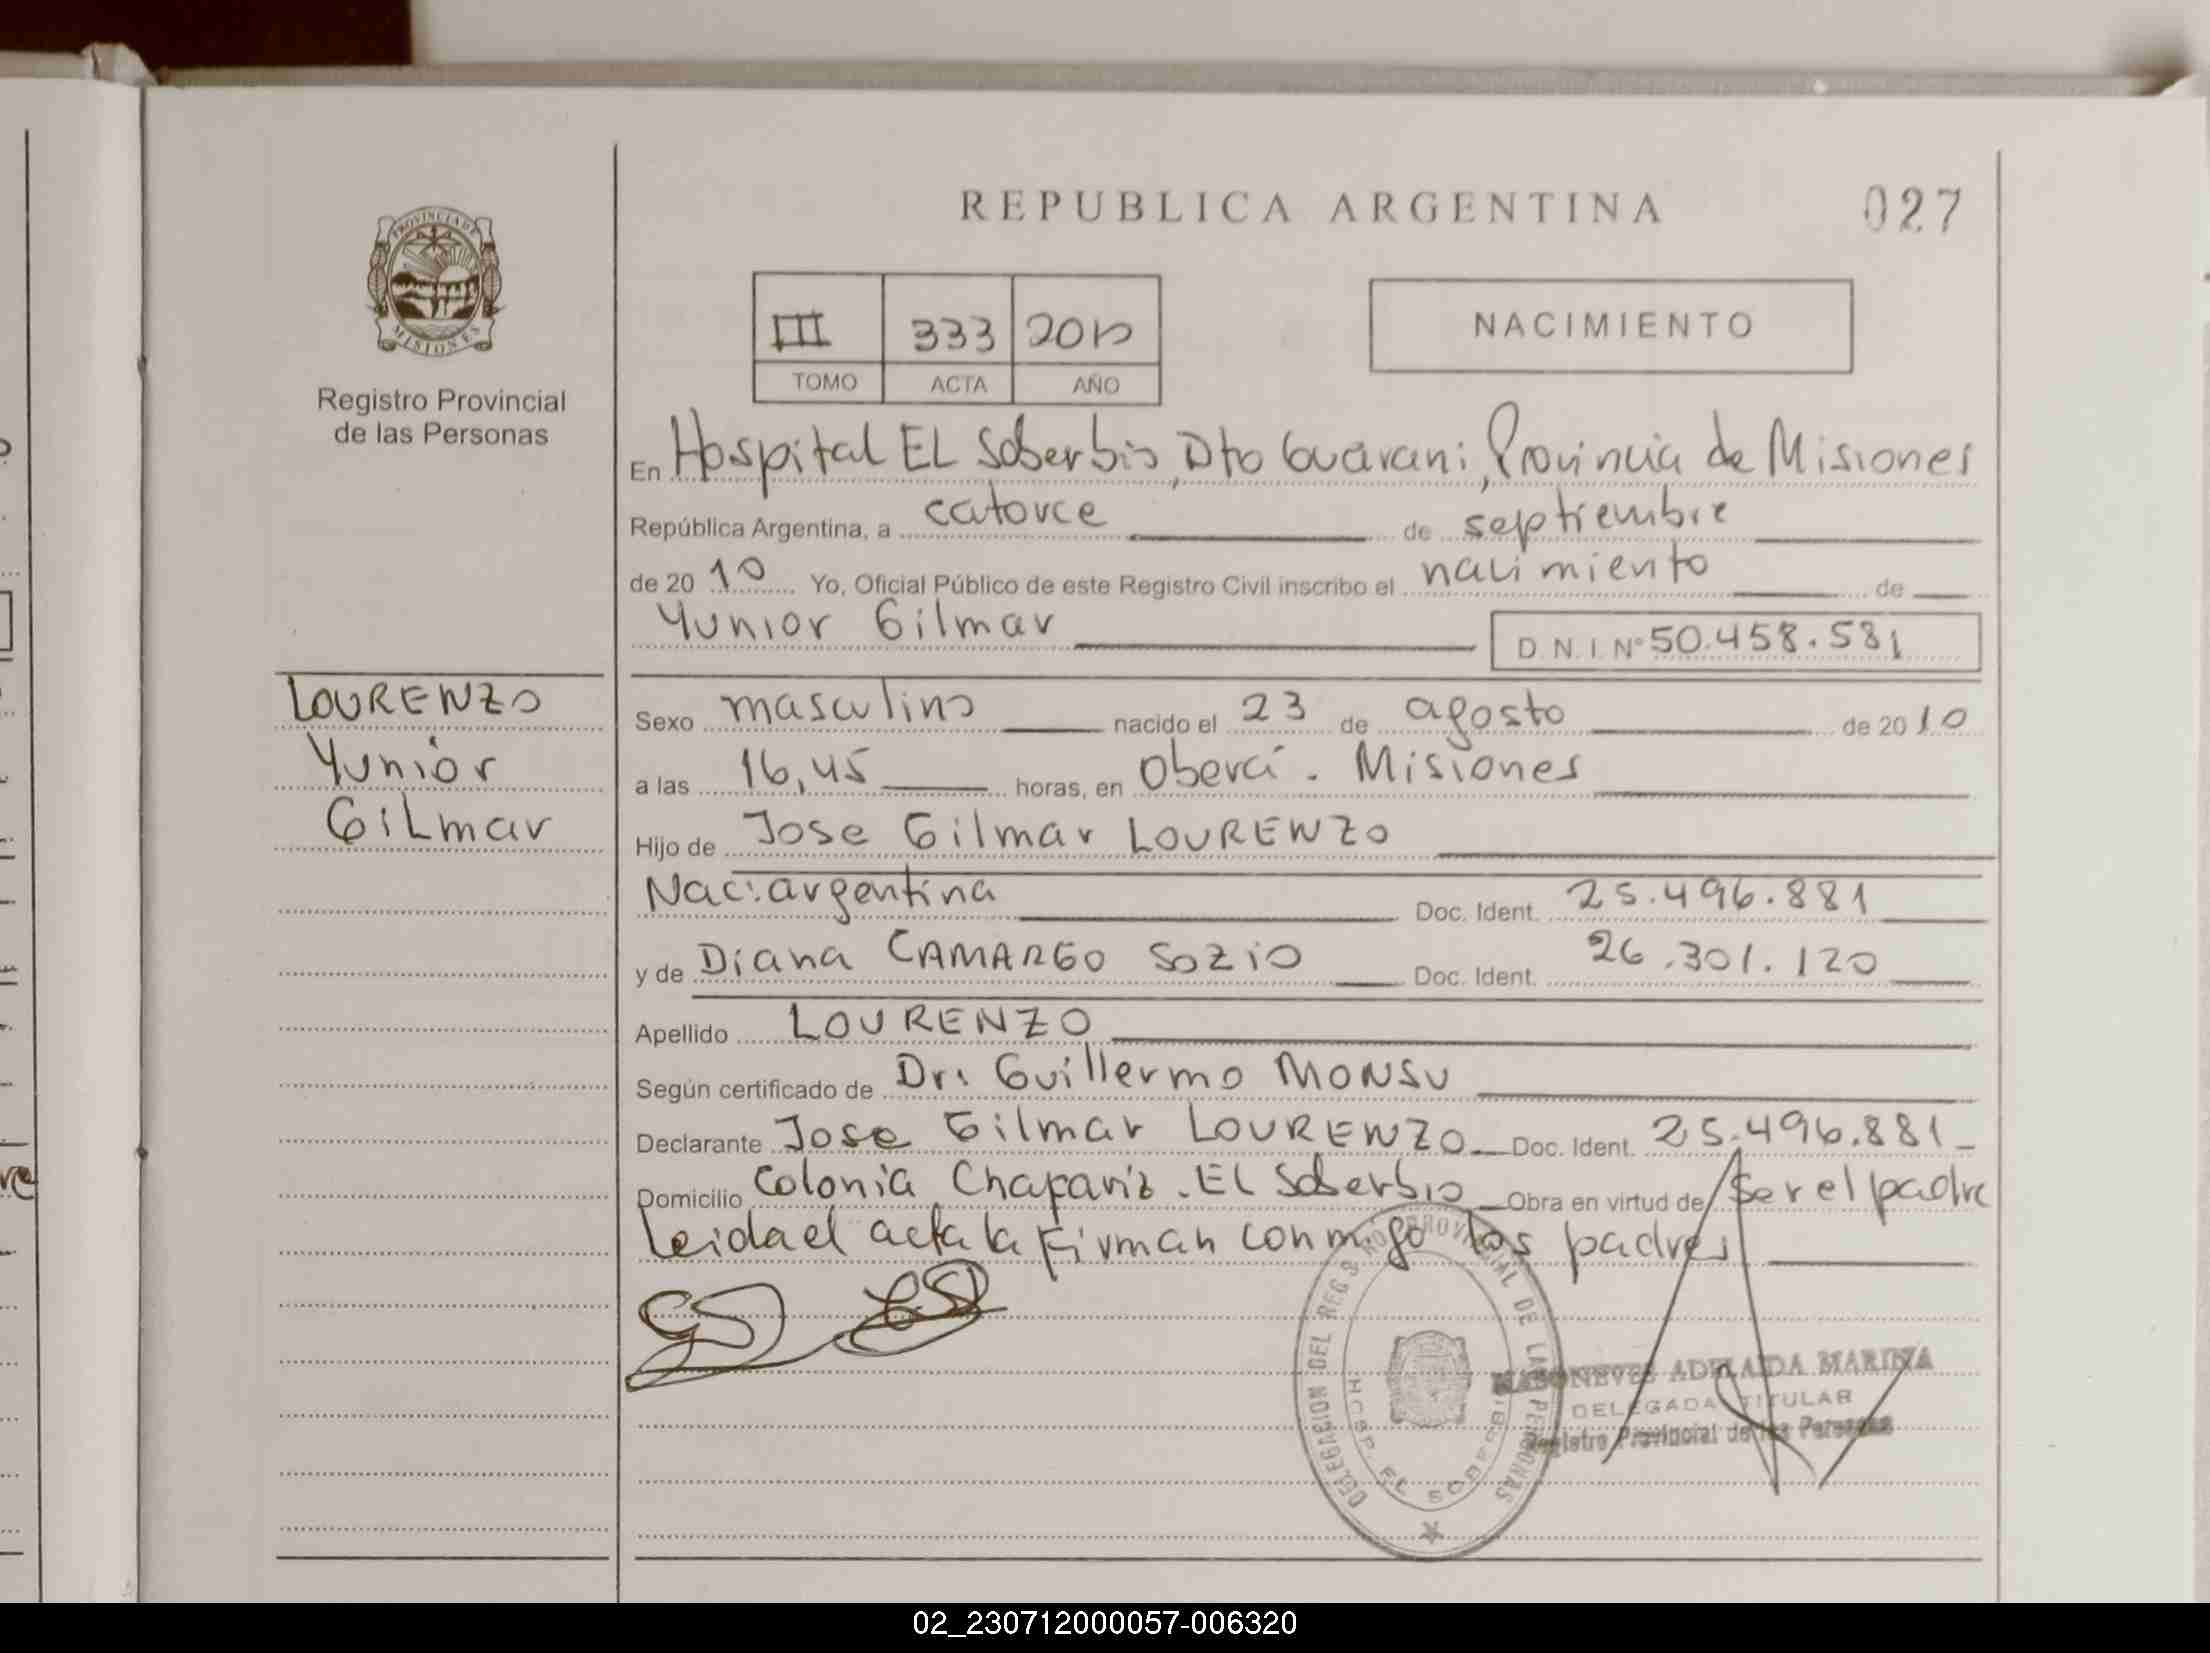 REPUBLICA ARGENTINA
027
PROVINCIA DE
MISIONES
Registro Provincial
de las Personas
III 333 2010
TOMO ACTA AÑO
NACIMIENTO
En Hospital EL Soberbio, Dto Guarani, Provincia de Misiones
República Argentina, a catorce de septiembre
de 2010 Yo, Oficial Público de este Registro Civil inscribo el nacimiento de
Yunior Gilmar D.N.I. Nº 50.458.581
LOURENZO
Yunior
GiLmar
Sexo masculino nacido el 23 de agosto de 2010
a las 16,45 horas, en Oberá. Misiones
Hijo de Jose Gilmar LOURENZO
Nac: argentina Doc. Ident. 25.496.881
y de Diana CAMARGO SOZIO Doc. Ident. 26.301.120
Apellido LOURENZO
Según certificado de Dr: Guillermo MONSU
Declarante Jose Gilmar LOURENZO Doc. Ident. 25.496.881
Domicilio Colonia . EL Soberbio Obra en virtud de ser el padre
Leida el acta la Firman conmigo los padres
DELEGACION DEL REG PROVINCIAL DE LAS PERSONAS
HOSP EL SOBERBIO
ADELAIDA MARINA
DELEGADA TITULAR
Registro Provincial de las Personas
02_230712000057-006320